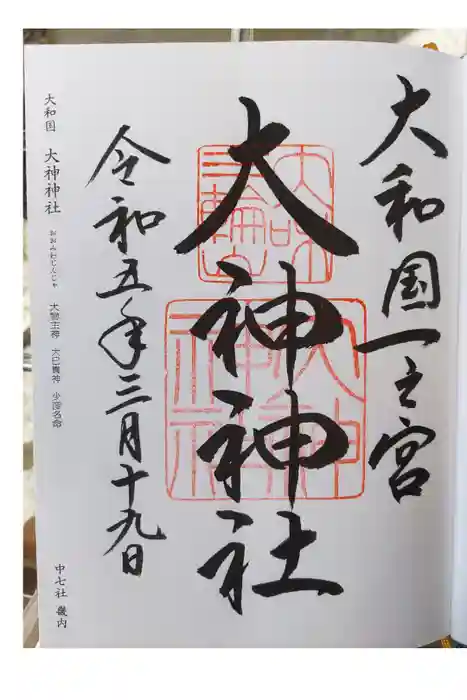 大和国一之宮
大神神社
令和五年三月十九日
大和国 大神神社 おおみわじんじゃ 大物主神 大己貴神 少彦名命
中七社 畿内
大神神社